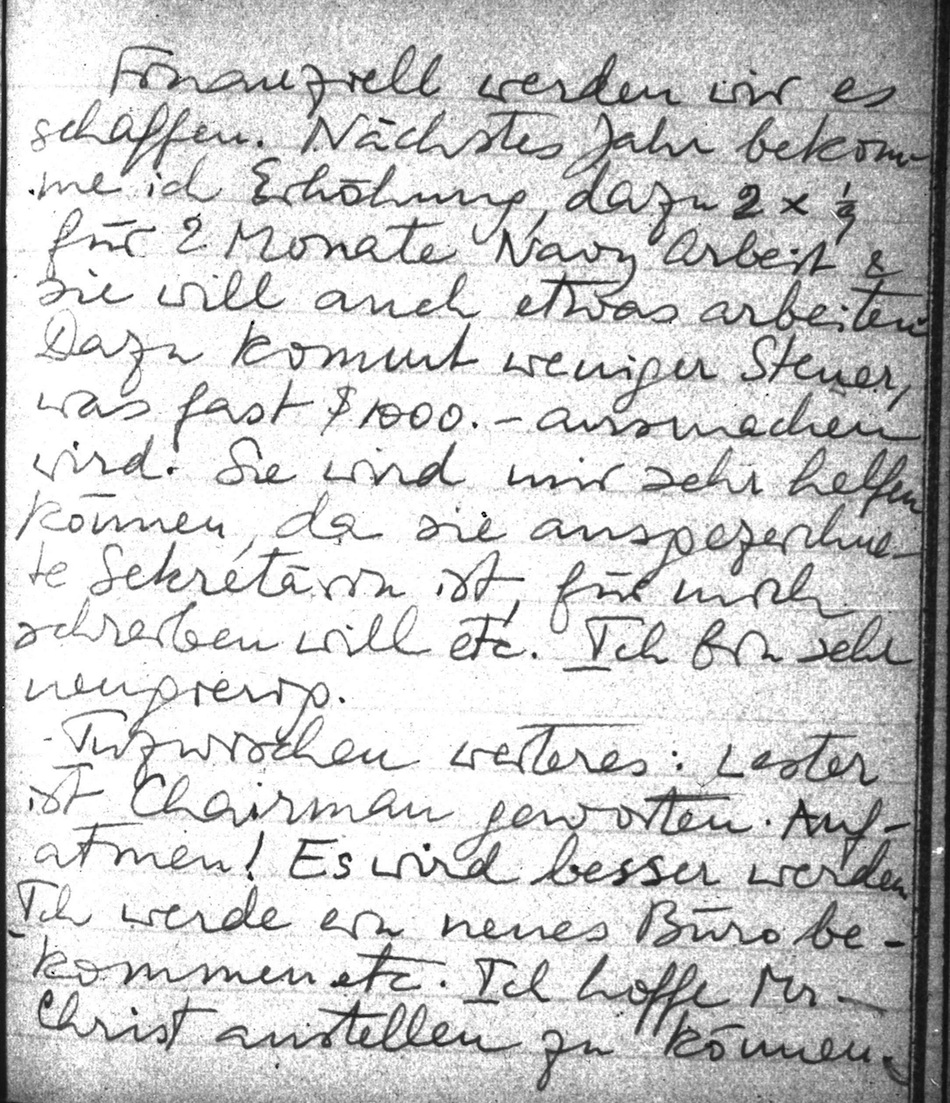 Finanziell werden wir es
schaffen. Nächstes Jahr bekom-
me ich Erhöhung, dazu 2 x 1/9
für 2 Monate Navy Arbeit &
sie will auch etwas arbeiten.
Dazu kommt weniger Steuer,
was fast $1000.- ausmachen
wird. Sie wird mir sehr helfen
können, da sie ausgezeichne-
te Sekretärin ist, für mich
schreiben will etc. Ich bin sehr
neugierig.
Inzwischen weiteres: Lester
ist Chairman geworden. Auf-
atmen! Es wird besser werden.
Ich werde ein neues Büro be-
kommen etc. Ich hoffe Mr-
Christ anstellen zu können.